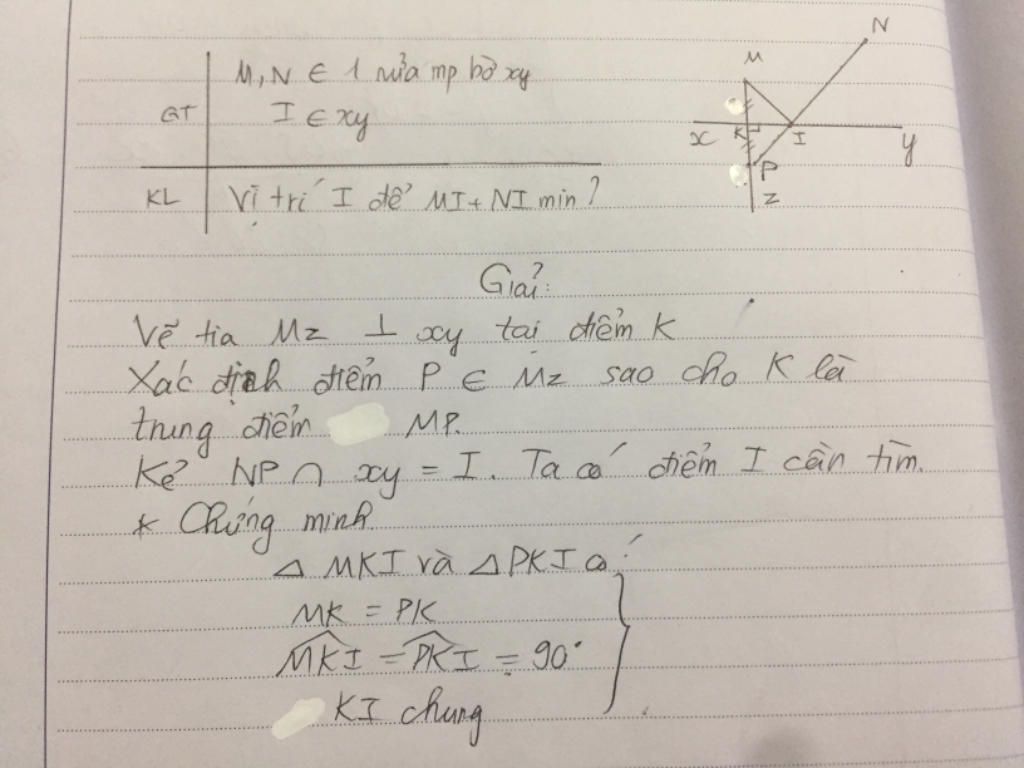 GT
M, N ∈ 1 nửa mp bờ xy
I ∈ xy
KL
Vị trí I để MI + NI min?
N
M
x
K
I
y
P
z
Giải:
Vẽ tia Mz ⊥ xy tại điểm K
Xác định điểm P ∈ Mz sao cho K là
trung điểm MP.
Kẻ NP ∩ xy = I. Ta có điểm I cần tìm.
* Chứng minh.
△ MKI và △ PKI có
MK = PK
MKI = PKI = 90°
KI chung